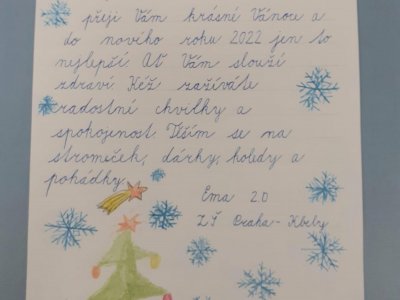 přeji Vám krásné Vánoce a
do nového roku 2022 jen to
nejlepčí. Ať Vám slouží
zdraví Kéž zažíváte
radostné chvilky a
spokojenost. Těším se na
stromeček, dárky, koledy a
pohádky.
Ema 2.D
ZŠ Praha-Kbely